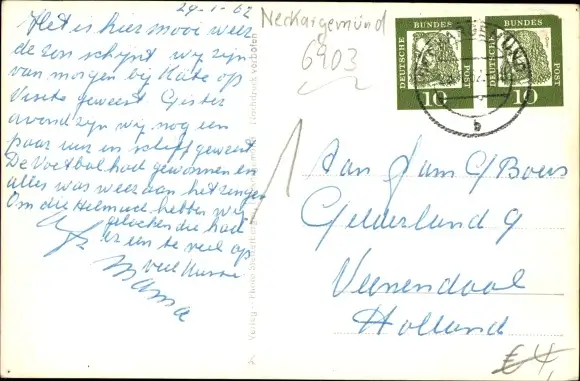 29-1-62
Het is hier mooi weer
de zon schijnt wij zijn
van morgen bij Käte op
Visite geweest Gister
avond zijn wij nog een
paar uur in schiff geweest
De Voetbal had gewonnen en
alles was weer aan het zingen
Om die Helmut hebben wij
gelachen die had
er een te veel op
veel
Mama
Neckargemünd
6903
DEUTSCHE BUNDES POST
10
DEUTSCHE BUNDES POST
10
b
Aan Jam C Boers
Gelderland 9
Veenendaal
Holland
€ 4,